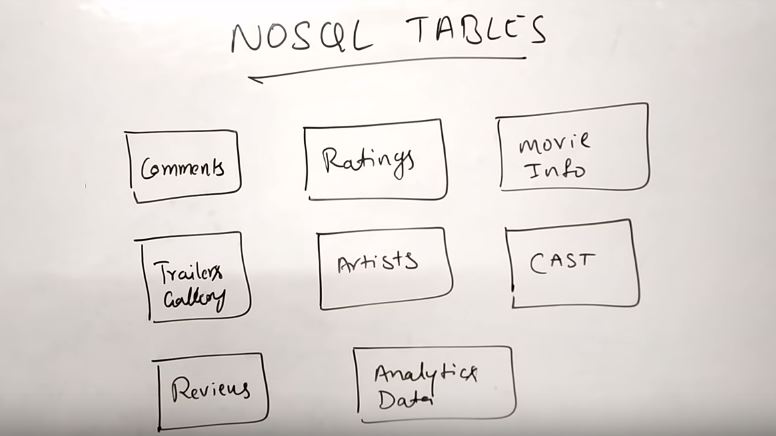 NOSQL TABLES
Comments
Ratings
Movie
Info
Trailers
Gallery
Artists
CAST
Reviews
Analytics
Data